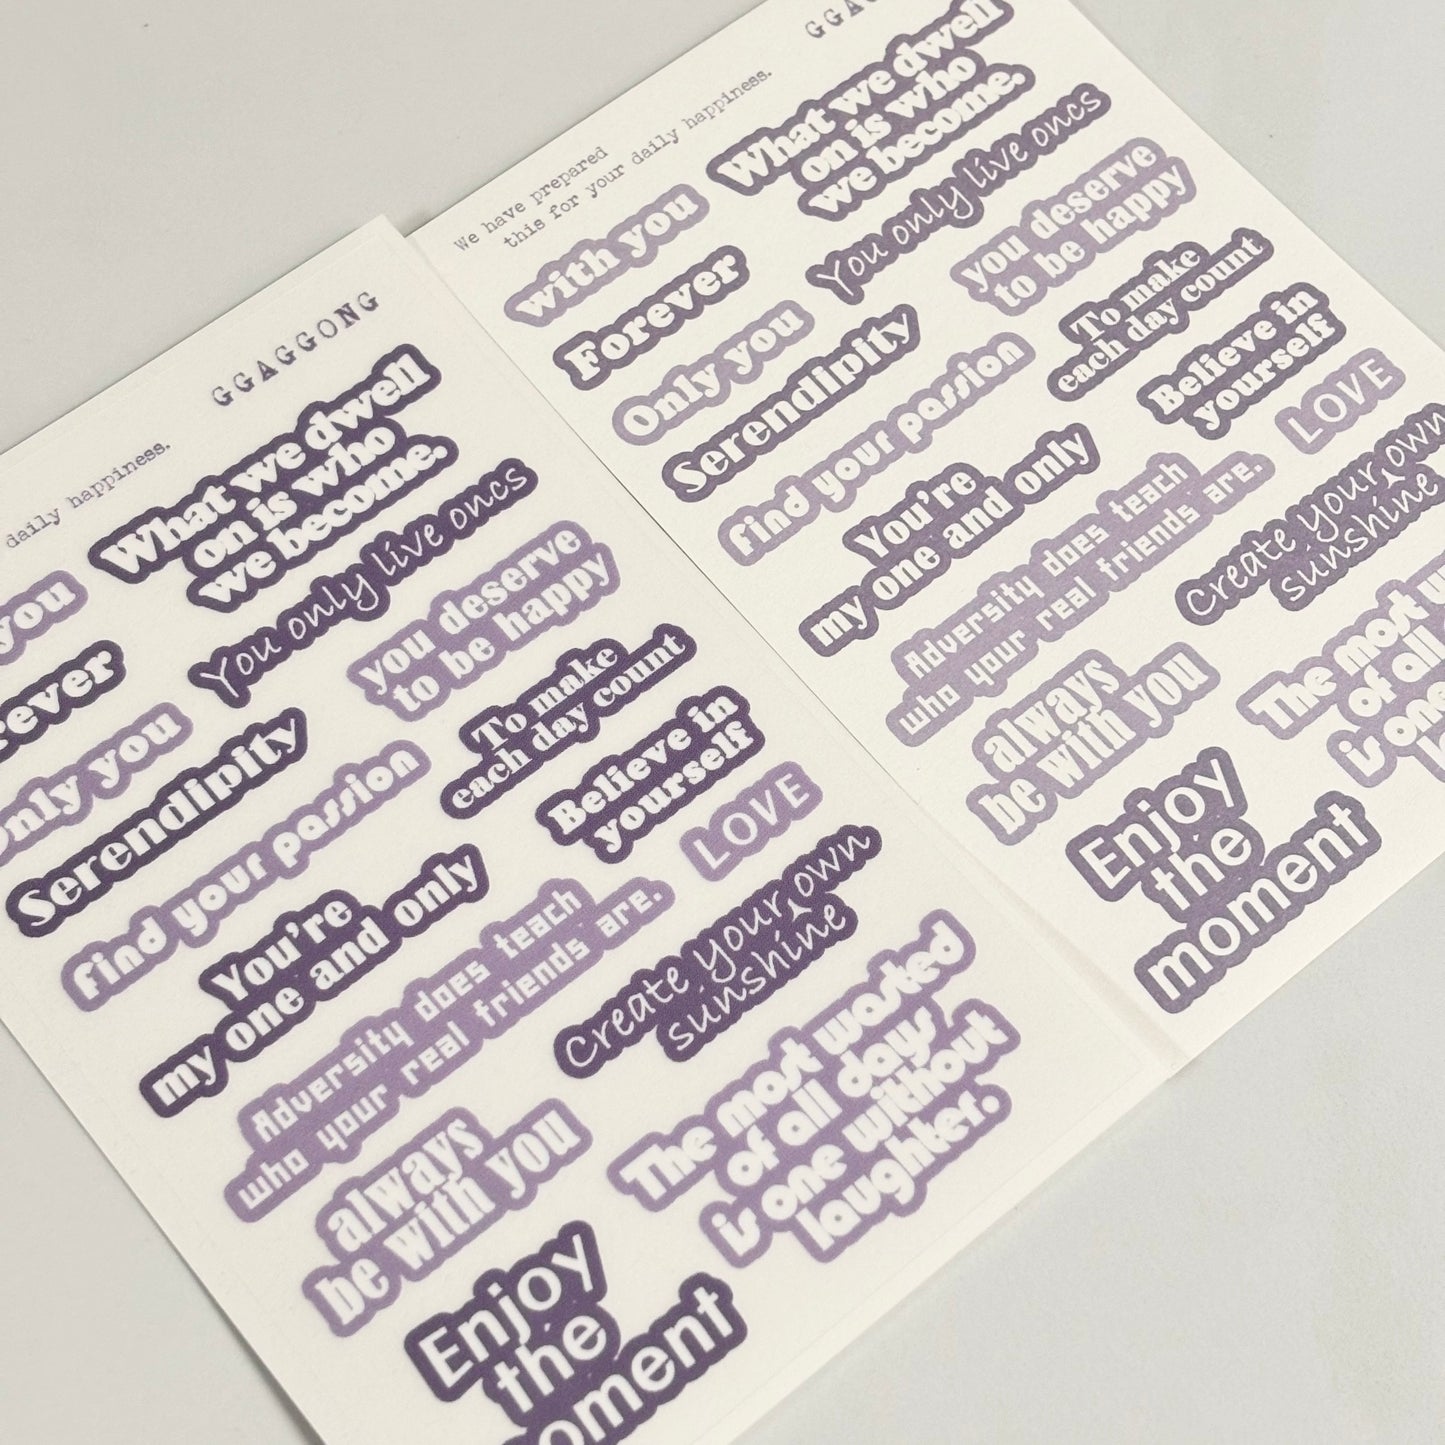 daily happiness.
GGAGGONG
What we dwell
on is who
we become.
You only live oncs
you
you deserve
to be happy
To make
each day count
Only you
Serendipity
Believe in
yourself
find your passion
LOVE
You're
my one and only
Create your own
sunshine
Adversity does teach
who your real friends are.
The most wasted
of all days
is one without
laughter.
always
be with you
Enjoy
the
We have prepared
this for your daily happiness.
What we dwell
on is who
we become.
with you
You only live oncs
Forever
you deserve
to be happy
Only you
To make
each day count
Serendipity
Believe in
yourself
find your passion
LOVE
You're
my one and only
Create your own
sunshine
Adversity does teach
who your real friends are.
The most
of all
is one
always
be with you
Enjoy
the
moment